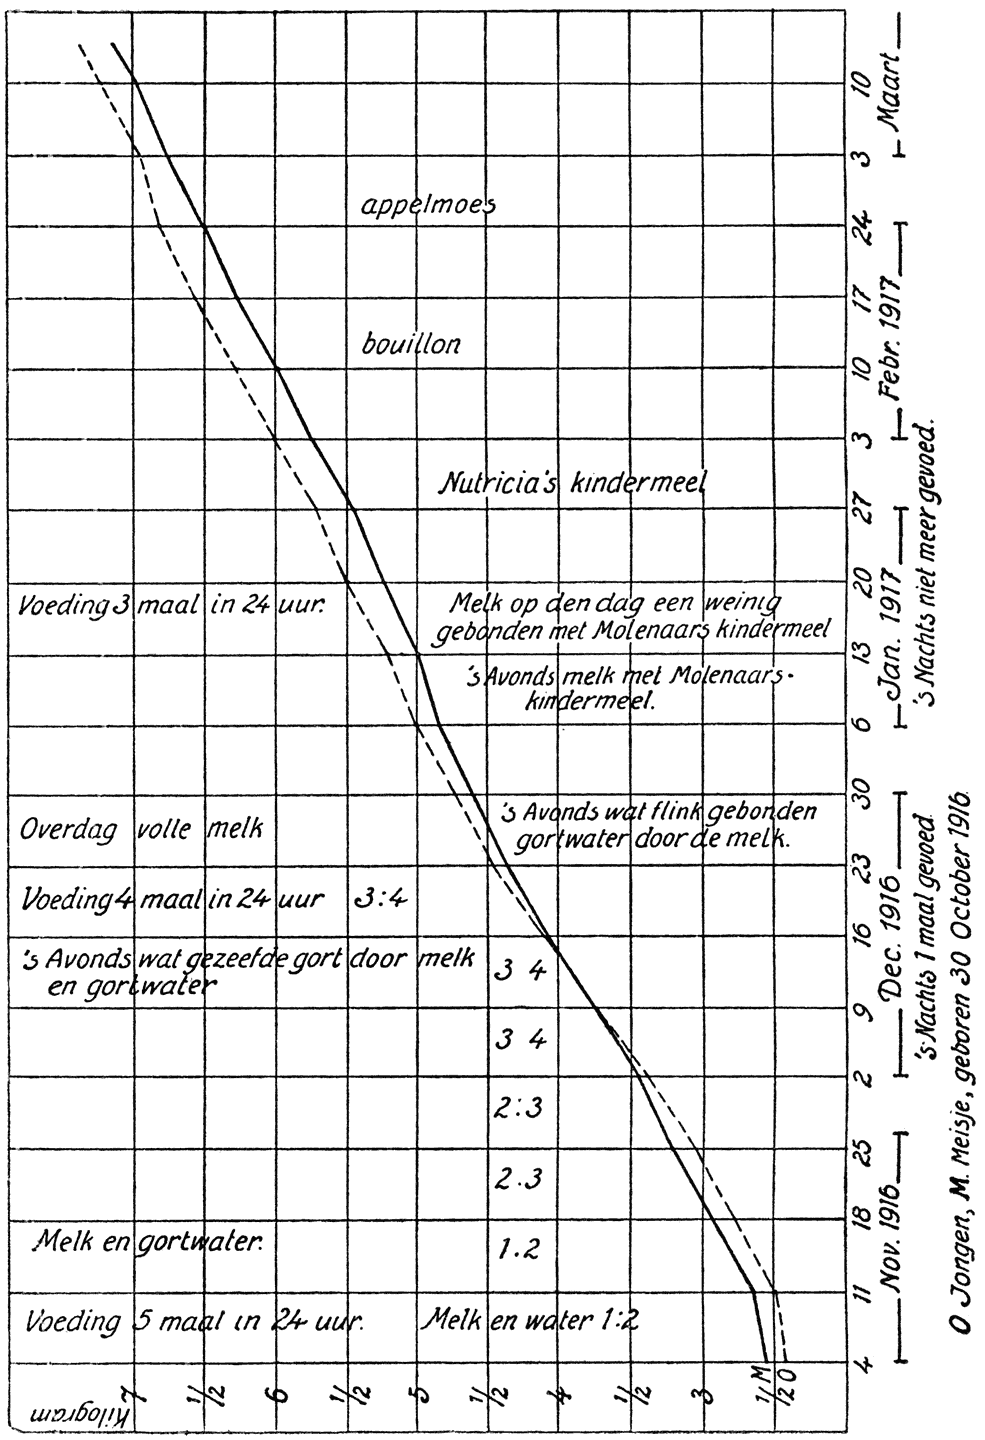 appelmoes
bouillon
Nutricia's kindermeel
Voeding 3 maal in 24 uur.
Melk op den dag een weinig
gebonden met Molenaars kindermeel
's Avonds melk met Molenaars-
kindermeel.
Overdag volle melk
's Avonds wat flink gebonden
gortwater door de melk.
Voeding 4 maal in 24 uur 3:4
's Avonds wat gezeefde gort door melk
en gortwater
3 4
3 4
2:3
2.3
Melk en gortwater.
1.2
Voeding 5 maal in 24 uur.
Melk en water 1:2
M
O
Kilogram
7
1/2
6
1/2
5
1/2
4
1/2
3
1/2
4 11 18 25 2 9 16 23 30 6 13 20 27 3 10 17 24 3 10
Nov. 1916
Dec. 1916
Jan. 1917
Febr. 1917
Maart
's Nachts 1 maal gevoed
's Nachts niet meer gevoed.
O Jongen, M. Meisje, geboren 30 October 1916.